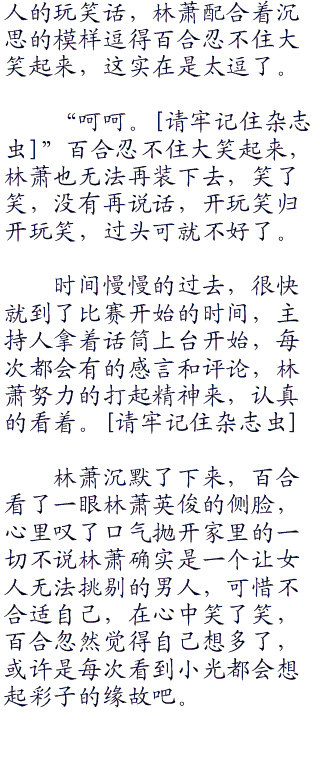 人的玩笑话，林萧配合着沉
思的模样逗得百合忍不住大
笑起来，这实在是太逗了。
“呵呵。[请牢记住杂志
虫]”百合忍不住大笑起来，
林萧也无法再装下去，笑了
笑，没有再说话，开玩笑归
开玩笑，过头可就不好了。
时间慢慢的过去，很快
就到了比赛开始的时间，主
持人拿着话筒上台开始，每
次都会有的感言和评论，林
萧努力的打起精神来，认真
的看着。[请牢记住杂志虫]
林萧沉默了下来，百合
看了一眼林萧英俊的侧脸，
心里叹了口气抛开家里的一
切不说林萧确实是一个让女
人无法挑剔的男人，可惜不
合适自己，在心中笑了笑，
百合忽然觉得自己想多了，
或许是每次看到小光都会想
起彩子的缘故吧。